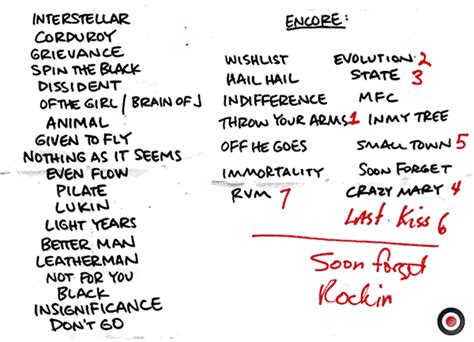 INTERSTELLAR
CORDUROY
GRIEVANCE
SPIN THE BLACK
DISSIDENT
OF THE GIRL / BRAIN OF J
ANIMAL
GIVEN TO FLY
NOTHING AS IT SEEMS
EVEN FLOW
PILATE
LUKIN
LIGHT YEARS
BETTER MAN
LEATHERMAN
NOT FOR YOU
BLACK
INSIGNIFICANCE
DON'T GO
ENCORE:
WISHLIST EVOLUTION 2
HAIL HAIL STATE 3
INDIFFERENCE MFC
THROW YOUR ARMS 1 IN MY TREE
OFF HE GOES SMALL TOWN 5
IMMORTALITY SOON FORGET
RVM 7 CRAZY MARY 4
LAST KISS 6
Soon forget
Rockin